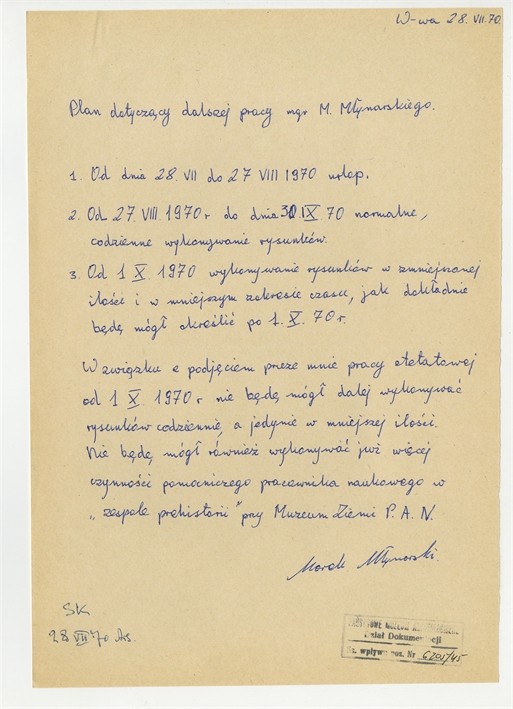 W-wa 28.VII.70.
Plan dotyczący dalszej pracy mgr M. Młynarskiego.
1. Od dnia 28.VII do 27 VIII 1970 urlop.
2. Od 27.VIII 1970r do dnia 30 IX 70 normalne,
codzienne wykonywanie rysunków.
3. Od 1 X. 1970 wykonywanie rysunków w zmniejszonej
ilości i w mniejszym zakresie czasu, jak dokładnie
będę mógł określić po 1.X.70r.
W związku z podjęciem przeze mnie pracy etatowej
od 1 X. 1970r nie będę mógł dalej wykonywać
rysunków codziennie, a jedynie w mniejszej ilości.
Nie będę mógł również wykonywać już więcej
czynności pomocniczego pracownika naukowego w
„zespole prehistorii" przy Muzeum Ziemi P.A.N.
Marek Młynarski.
SK
28 VII 70
Dział Dokumentacji
wpływu poz. Nr